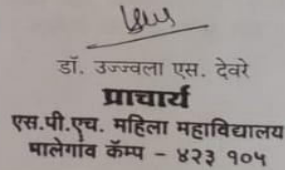 डॉ. उज्ज्वला एस. देवरे
प्राचार्य
एस.पी.एच. महिला महाविद्यालय
मालेगांव कॅम्प - ४२३ १०५